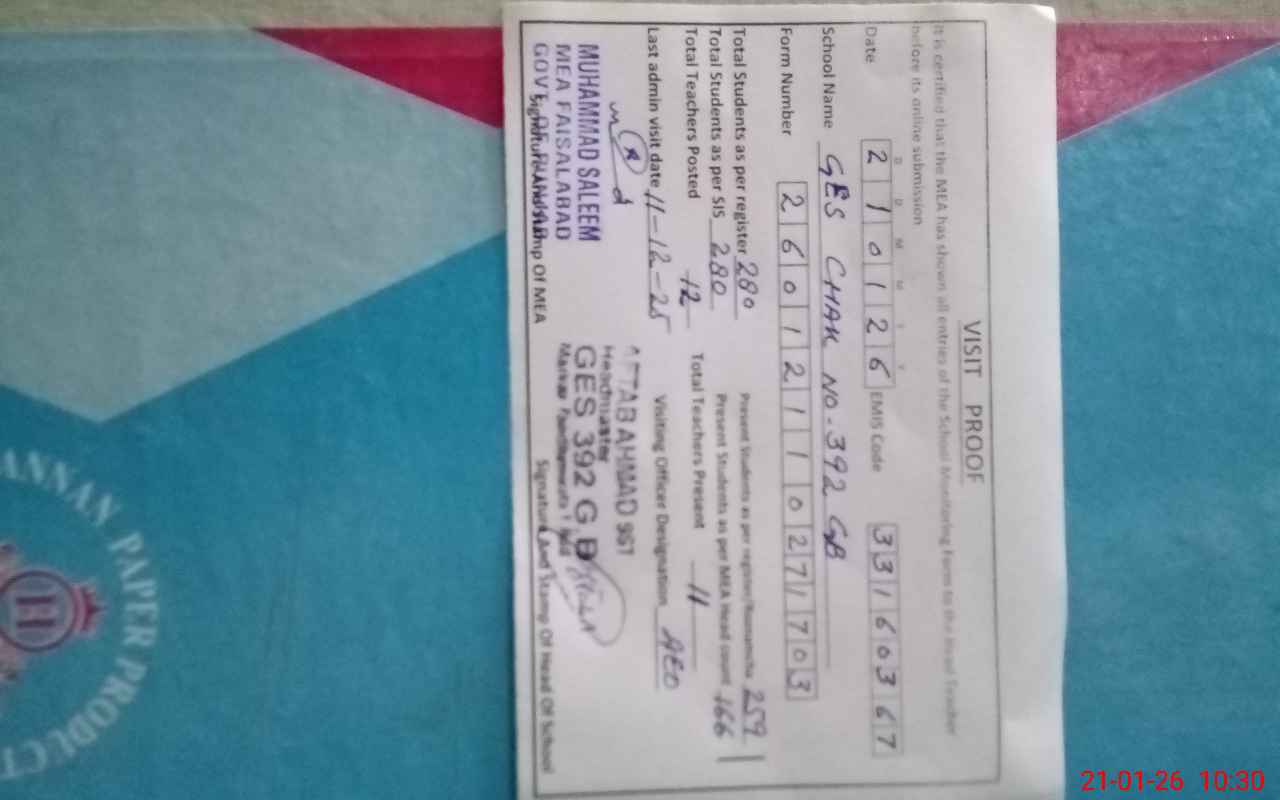 VISIT PROOF
It is certified that the MEA has shown all entries of the School Monitoring Form to the Head Teacher
before its online submission
D D M M Y Y
Date 2 1 0 1 2 6 EMIS Code 3 3 1 6 0 3 6 7
School Name GES CHAK NO. 392 GB
Form Number 2 6 0 1 2 1 1 0 2 7 1 7 0 3
Total Students as per register 280 Present Students as per register/Roznamcha 259
Total Students as per SIS 280 Present Students as per MEA Head count 166
Total Teachers Posted 12 Total Teachers Present 11
Last admin visit date 11-12-25 Visiting Officer Designation AEO
MUHAMMAD SALEEM
MEA FAISALABAD
GOVT. OF PUNJAB
Signature And Stamp Of MEA
AFTAB AHMAD 967
Headmaster
GES 392 G B
Markaz
Signature And Stamp Of Head Of School
ANNAN PAPER PRODUCT
H
21-01-26 10:30